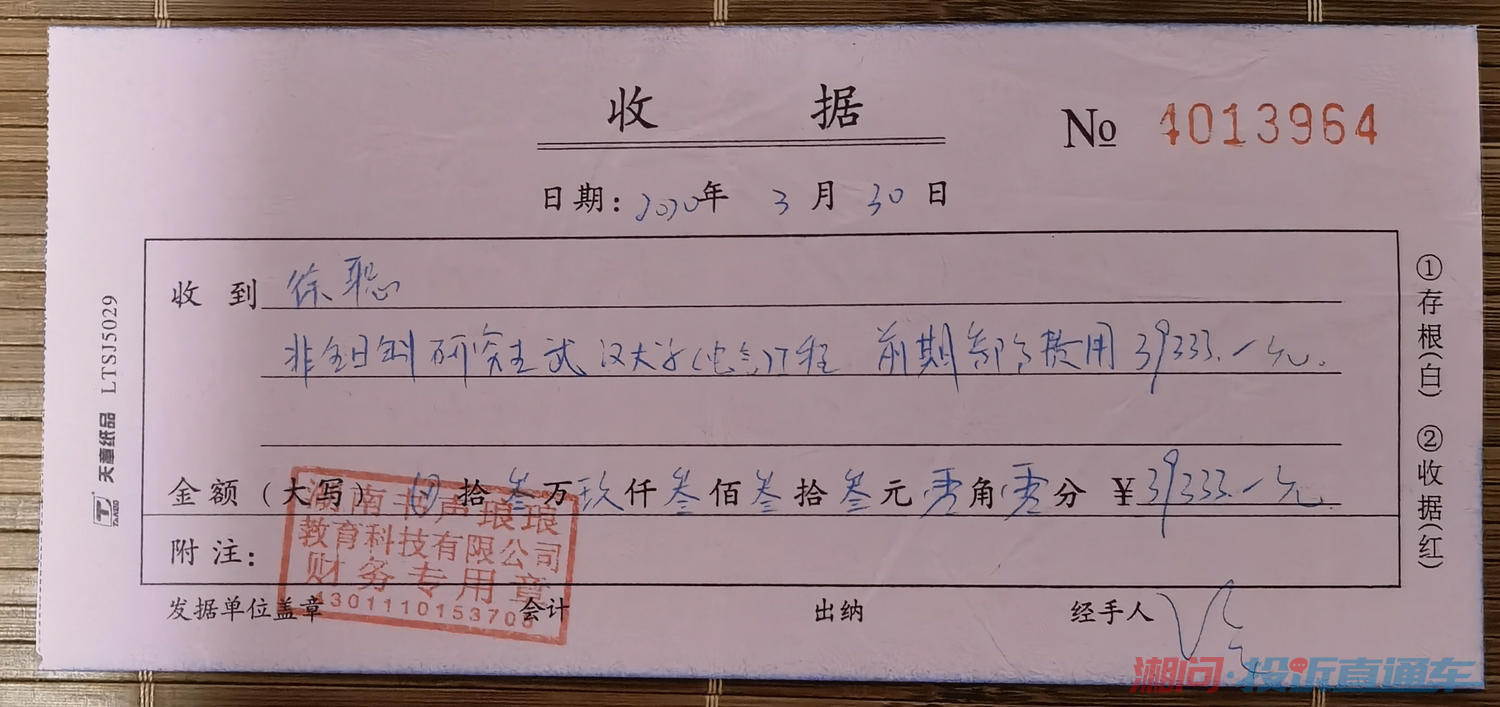 收 据
No 4013964
日期：2020年 3月 30日
收到 徐聪
非全日制研究生武汉大学(电气)工程 前期部分费用39333.一元.
金额（大写）拾叁万玖仟叁佰叁拾叁元零角零分 ￥39333.一元.
附注：
湖南书声琅琅
教育科技有限公司
财务专用章
发据单位盖章 会计 出纳 经手人
①存根(白) ②收据(红)
天章纸品 LTSJ5029
TANGO
湘问·投诉直通车